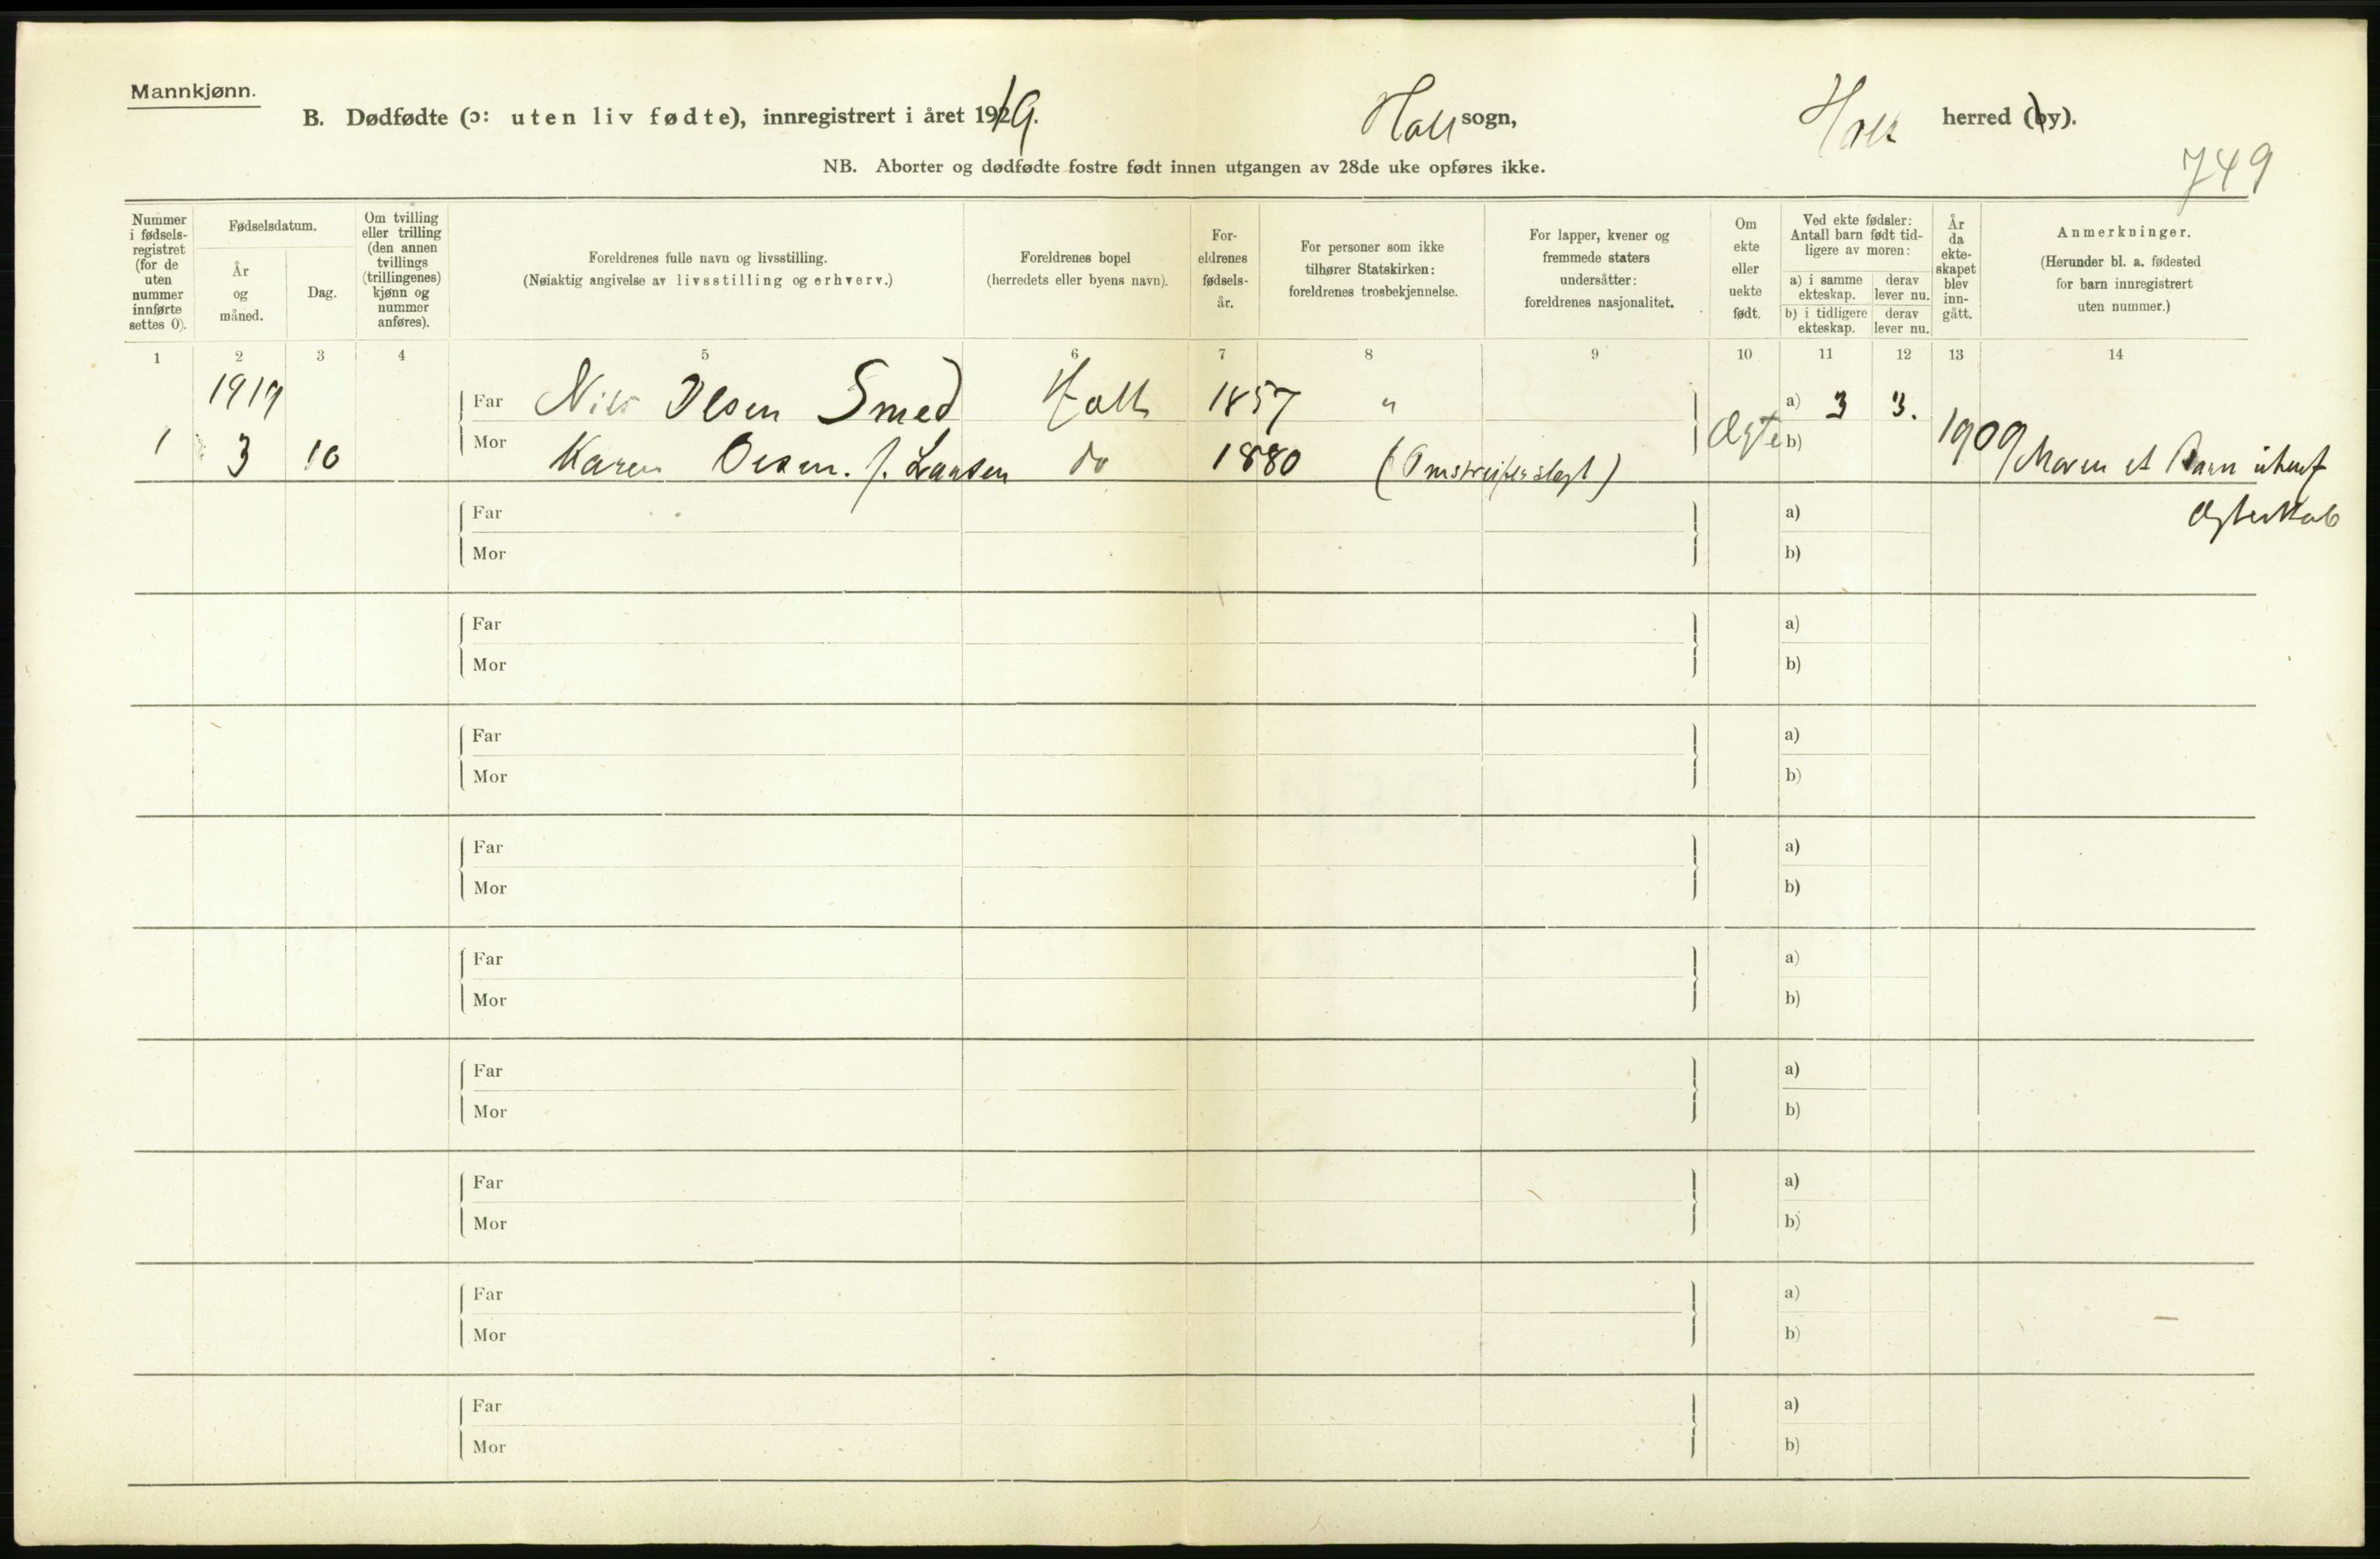 Mannkjønn.
B. Dødfødte (ɔ: uten liv fødte), innregistrert i året 1919. Holt sogn, Holt herred (by).
749
NB. Aborter og dødfødte fostre født innen utgangen av 28de uke opføres ikke.
Nummer i fødsels-registret (for de uten nummer innførte settes 0).
Fødselsdatum.
År og måned.
Dag.
Om tvilling eller trilling (den annen tvillings (trillingenes) kjønn og nummer anføres).
Foreldrenes fulle navn og livsstilling.
(Nøiaktig angivelse av livsstilling og erhverv.)
Foreldrenes bopel
(herredets eller byens navn).
For-eldrenes fødsels-år.
For personer som ikke tilhører Statskirken: foreldrenes trosbekjennelse.
For lapper, kvener og fremmede staters undersåtter: foreldrenes nasjonalitet.
Om ekte eller uekte født.
Ved ekte fødsler: Antall barn født tid-ligere av moren:
a) i samme ekteskap.
derav lever nu.
b) i tidligere ekteskap.
derav lever nu.
År da ekte-skapet blev inn-gått.
Anmerkninger.
(Herunder bl. a. fødested for barn innregistrert uten nummer.)
1 2 3 4 5 6 7 8 9 10 11 12 13 14
1919 Far Nils Olsen Smed Holt 1857 " a) 3 3.
1 3 10 Mor Karen Olsen. f. Larsen do 1880 (Omstreiferslegt) Ægte b) 1909 Moren et Barn utenf
Ægteskab
Far a)
Mor b)
Far a)
Mor b)
Far a)
Mor b)
Far a)
Mor b)
Far a)
Mor b)
Far a)
Mor b)
Far a)
Mor b)
Far a)
Mor b)
Far a)
Mor b)